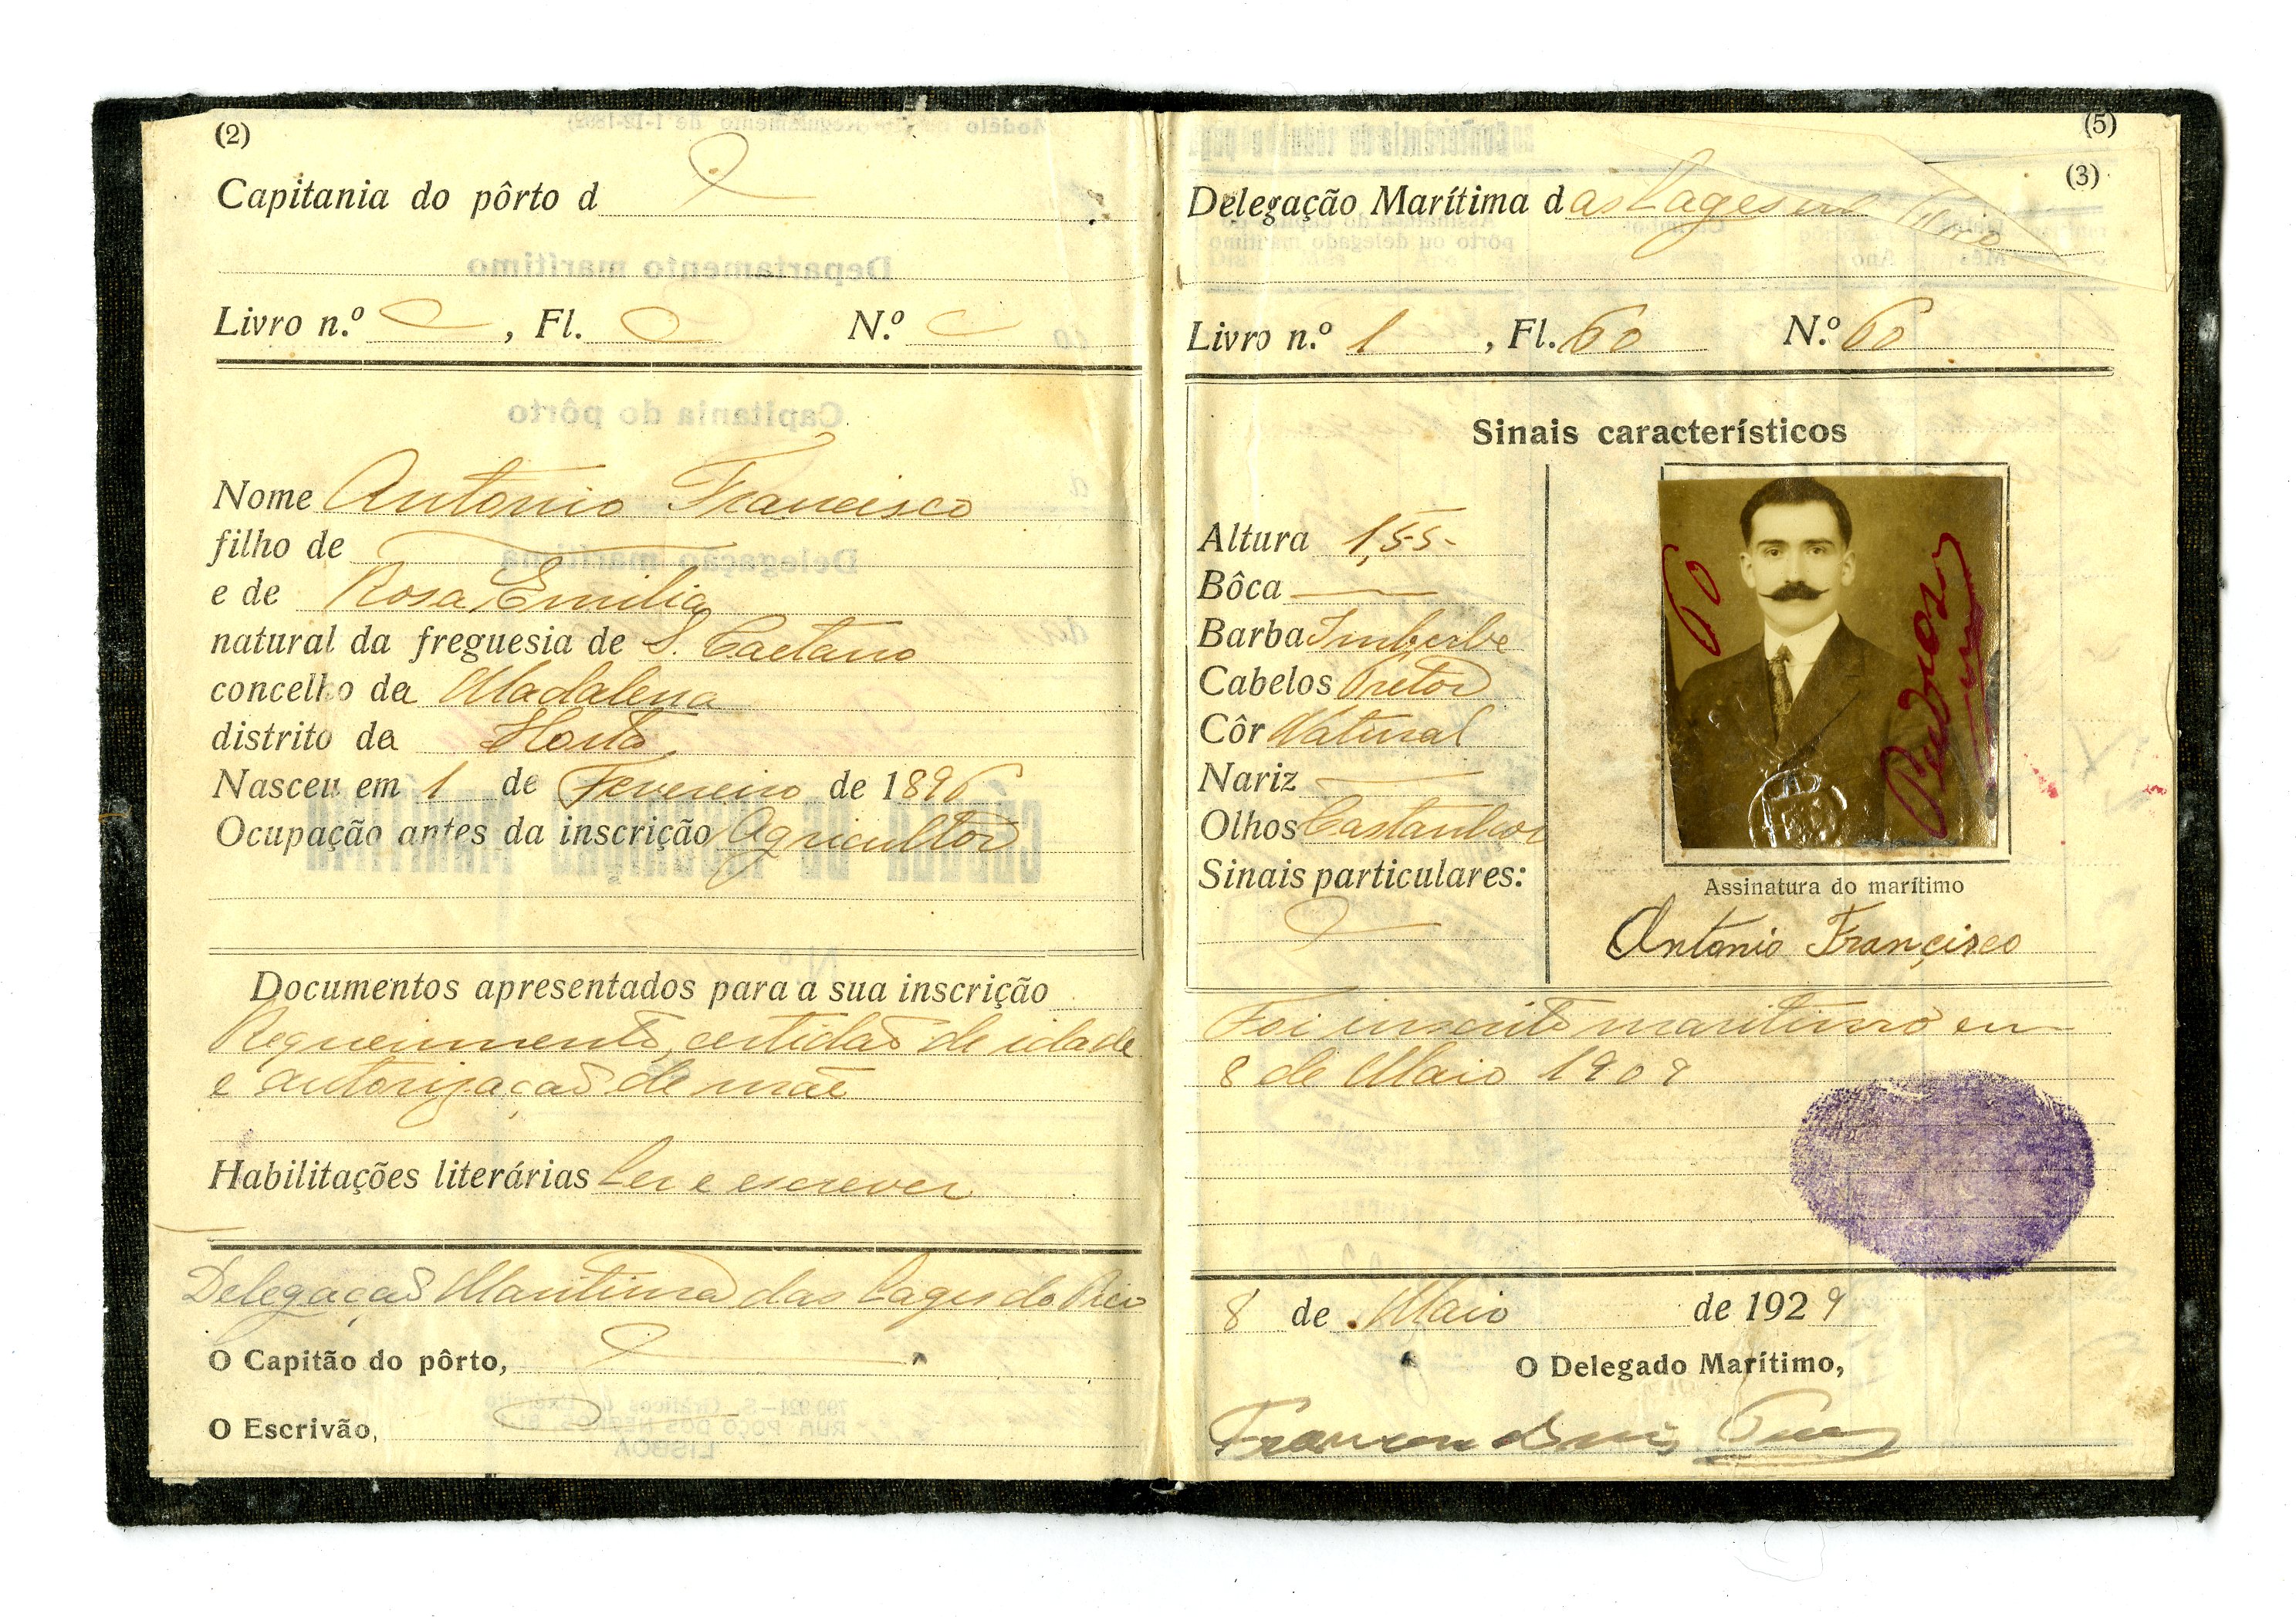 (2)
Capitania do pôrto d
Livro n.º , Fl. N.º
Nome Antonio Francisco
filho de
e de Rosa Emilia
natural da freguesia de S. Caetano
concelho da Madalena
distrito da Horta
Nasceu em 1 de Fevereiro de 1896
Ocupação antes da inscrição Agricultor
Documentos apresentados para a sua inscrição
Requerimento, certidão de idade
e autorização de mãe
Habilitações literárias Ler e escrever
Delegação Maritima das Lages do Pico
O Capitão do pôrto,
O Escrivão,
(5)
(3)
Delegação Marítima das Lages do Pico
Livro n.º 1 , Fl. 60 N.º 60
Sinais característicos
Altura 1,55
Bôca
Barba Imberbe
Cabelos Pretos
Côr Natural
Nariz
Olhos Castanhos
Sinais particulares:
60
Assinatura do marítimo
Antonio Francisco
Foi inscrito maritimo em
8 de Maio 1909
8 de Maio de 1929
O Delegado Marítimo,